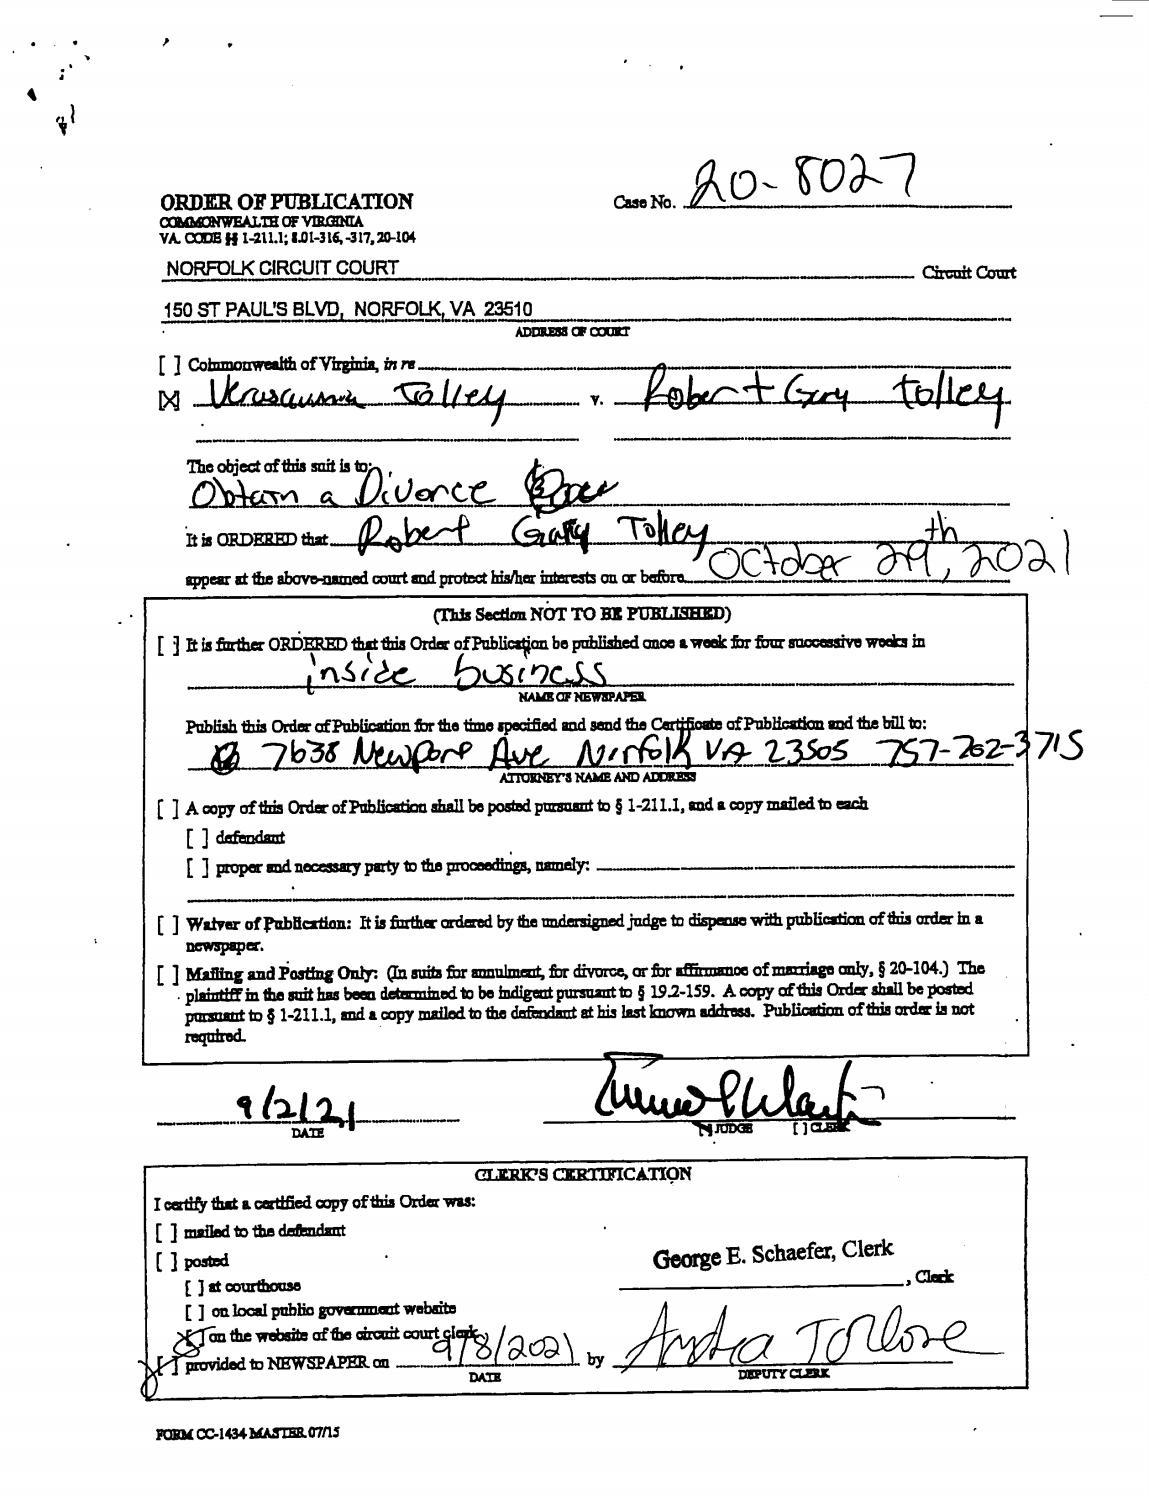 Case No. 20-8027
ORDER OF PUBLICATION
COMMONWEALTH OF VIRGINIA
VA. CODE §§ 1-211.1; 8.01-316, -317, 20-104
NORFOLK CIRCUIT COURT Circuit Court
150 ST PAUL'S BLVD, NORFOLK, VA 23510
ADDRESS OF COURT
[ ] Commonwealth of Virginia, in re
[X] Tolley v. Robert Gary Tolley
The object of this suit is to:
Obtain a Divorce
It is ORDERED that Robert Gary Tolley
appear at the above-named court and protect his/her interests on or before October 29th, 2021
(This Section NOT TO BE PUBLISHED)
[ ] It is further ORDERED that this Order of Publication be published once a week for four successive weeks in
inside business
NAME OF NEWSPAPER
Publish this Order of Publication for the time specified and send the Certificate of Publication and the bill to:
7638 Newport Ave Norfolk VA 23505 757-262-3715
ATTORNEY'S NAME AND ADDRESS
[ ] A copy of this Order of Publication shall be posted pursuant to § 1-211.1, and a copy mailed to each
[ ] defendant
[ ] proper and necessary party to the proceedings, namely:
[ ] Waiver of Publication: It is further ordered by the undersigned judge to dispense with publication of this order in a
newspaper.
[ ] Mailing and Posting Only: (In suits for annulment, for divorce, or for affirmance of marriage only, § 20-104.) The
plaintiff in the suit has been determined to be indigent pursuant to § 19.2-159. A copy of this Order shall be posted
pursuant to § 1-211.1, and a copy mailed to the defendant at his last known address. Publication of this order is not
required.
9/2/21
DATE [X] JUDGE [ ] CLERK
CLERK'S CERTIFICATION
I certify that a certified copy of this Order was:
[ ] mailed to the defendant
[ ] posted
George E. Schaefer, Clerk
, Clerk
[ ] at courthouse
[ ] on local public government website
[X] on the website of the circuit court clerk
[X] provided to NEWSPAPER on 9/8/2021 by
DATE
DEPUTY CLERK
FORM CC-1434 MASTER 07/15